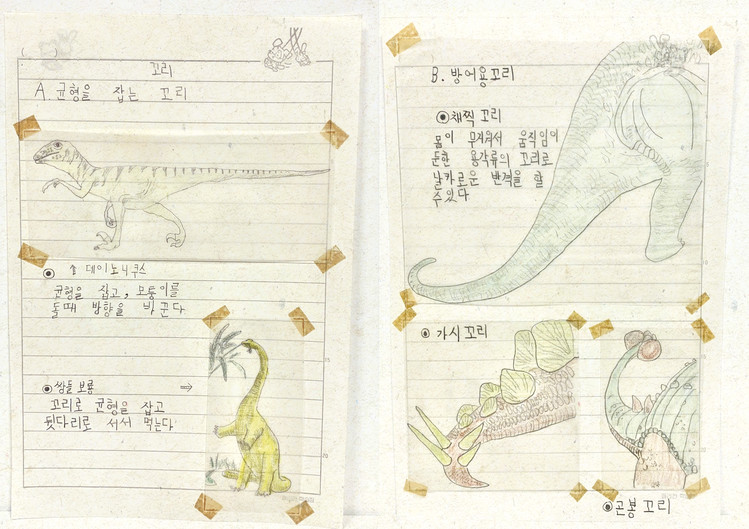 ( )
꼬리
A. 균형을 잡는 꼬리
↑ 데이노니쿠스
균형을 잡고, 모퉁이를
돌때 방향을 바꾼다
쌍둘보룡 ⇒
꼬리로 균형을 잡고
뒷다리로 서서 먹는다
B. 방어용꼬리
채찍 꼬리
몸이 무거워서 움직임이
둔한 용각류의 꼬리로
날카로운 반격을 할
수있다
가시꼬리
곤봉 꼬리